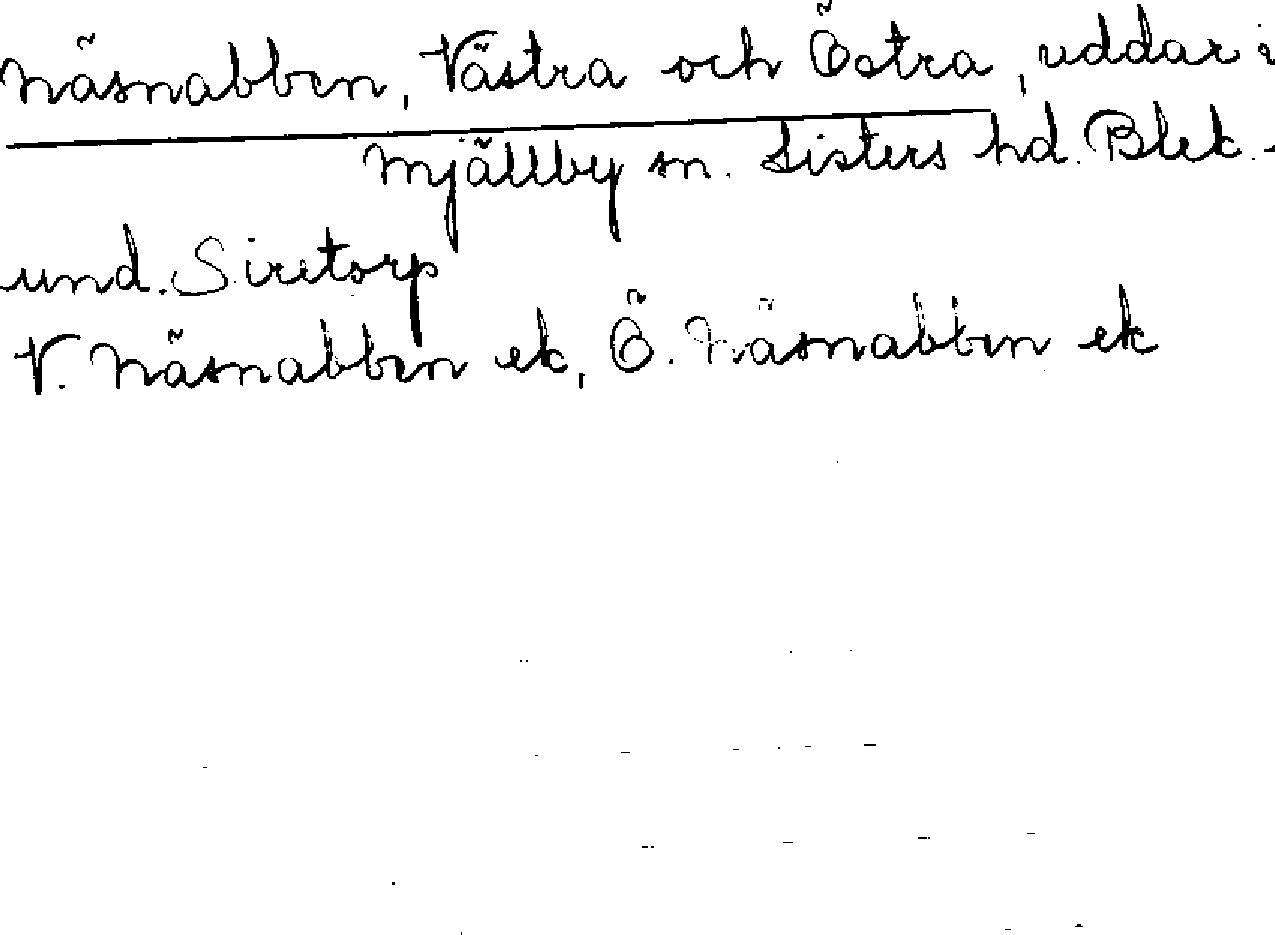 Näsnabben, Västra och Östra, uddar i
Mjällby sn. Listers hd. Blek.
und. Siretorp
V. Näsnabben ek, Ö. Näsnabben ek